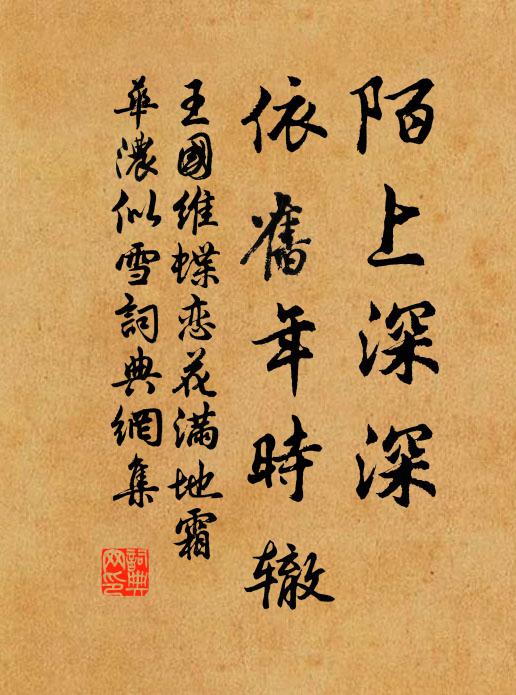 陌上深深
依舊年時轍
王國維蝶恋花满地霜
華濃似雪詞典網集
詞典網印